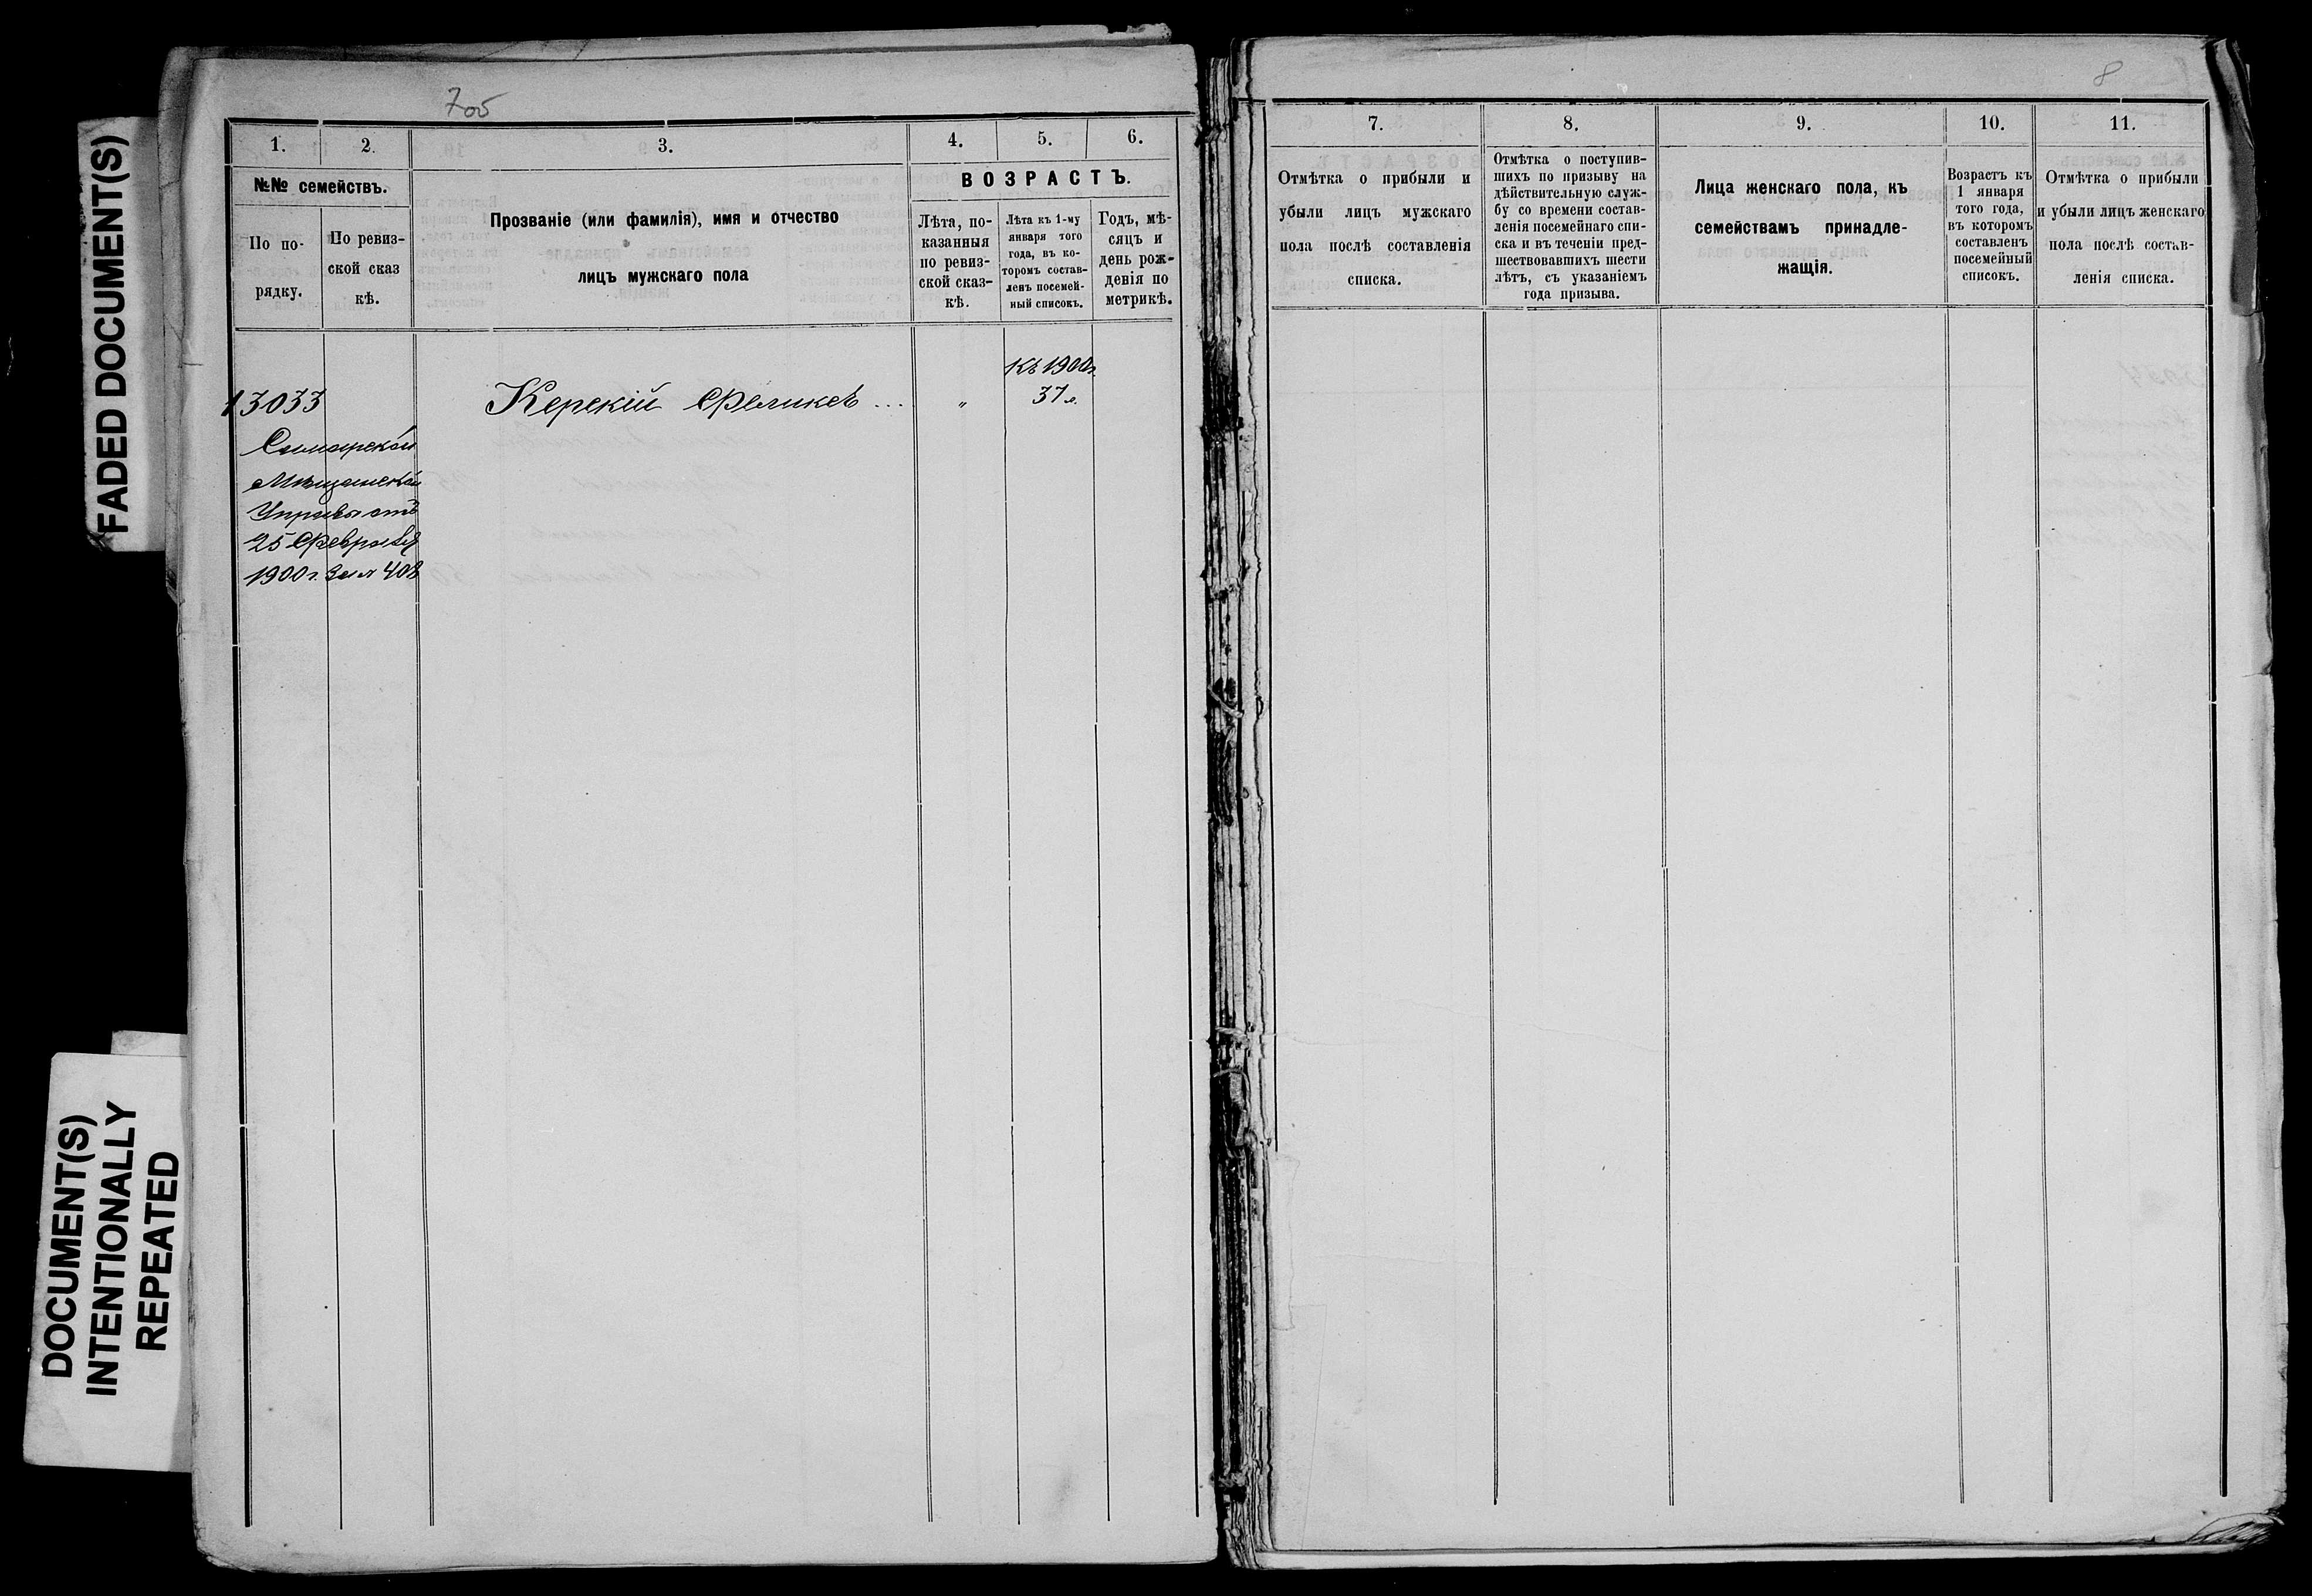 FADED DOCUMENT(S)
DOCUMENT(S)
INTENTIONALLY
REPEATED
705
1.
2.
3.
4.
5.
6.
№№ семействъ.
По по-
рядку.
По ревиз-
ской сказ
кѣ.
Прозваніе (или фамилія), имя и отчество
лицъ мужскаго пола
ВОЗРАСТЪ.
Лѣта, по-
казанныя
по ревиз-
ской сказ-
кѣ.
Лѣта къ 1-му
января того
года, въ ко-
торомъ состав-
ленъ посемей-
ный списокъ.
Годъ, мѣ-
сяцъ и
день рож-
денія по
метрикѣ.
Къ 1900г.
13033
Керскій Феликсъ ... „ 37 л.
Самарской
Мѣщанской
Управы отъ
25 Февраля
1900 г. за № 408
8
7.
8.
9.
10.
11.
Отмѣтка о прибыли и
убыли лицъ мужскаго
пола послѣ составленія
списка.
Отмѣтка о поступив-
шихъ по призыву на
дѣйствительную служ-
бу со времени состав-
ленія посемейнаго спи-
ска и въ теченіи пред-
шествовавшихъ шести
лѣтъ, съ указаніемъ
года призыва.
Лица женскаго пола, къ
семействамъ принадле-
жащія.
Возрастъ къ
1 января
того года,
въ которомъ
составленъ
посемейный
списокъ.
Отмѣтка о прибыли
и убыли лицъ женскаго
пола послѣ состав-
ленія списка.